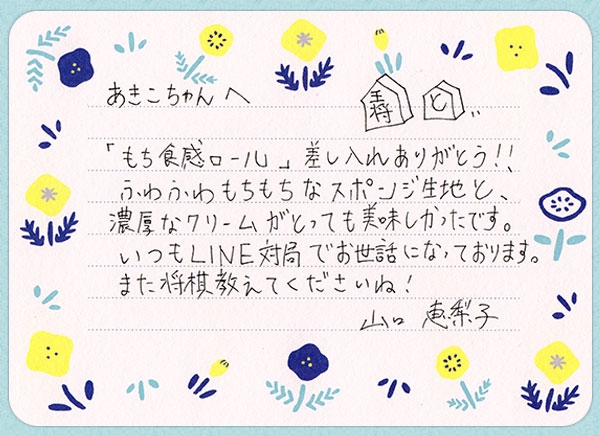 あきこちゃんへ
王将 と
「もち食感ロール」差し入れありがとう!!
ふわふわもちもちなスポンジ生地と、
濃厚なクリームがとっても美味しかったです。
いつもLINE対局でお世話になっております。
また将棋教えてくださいね!
山口 恵梨子